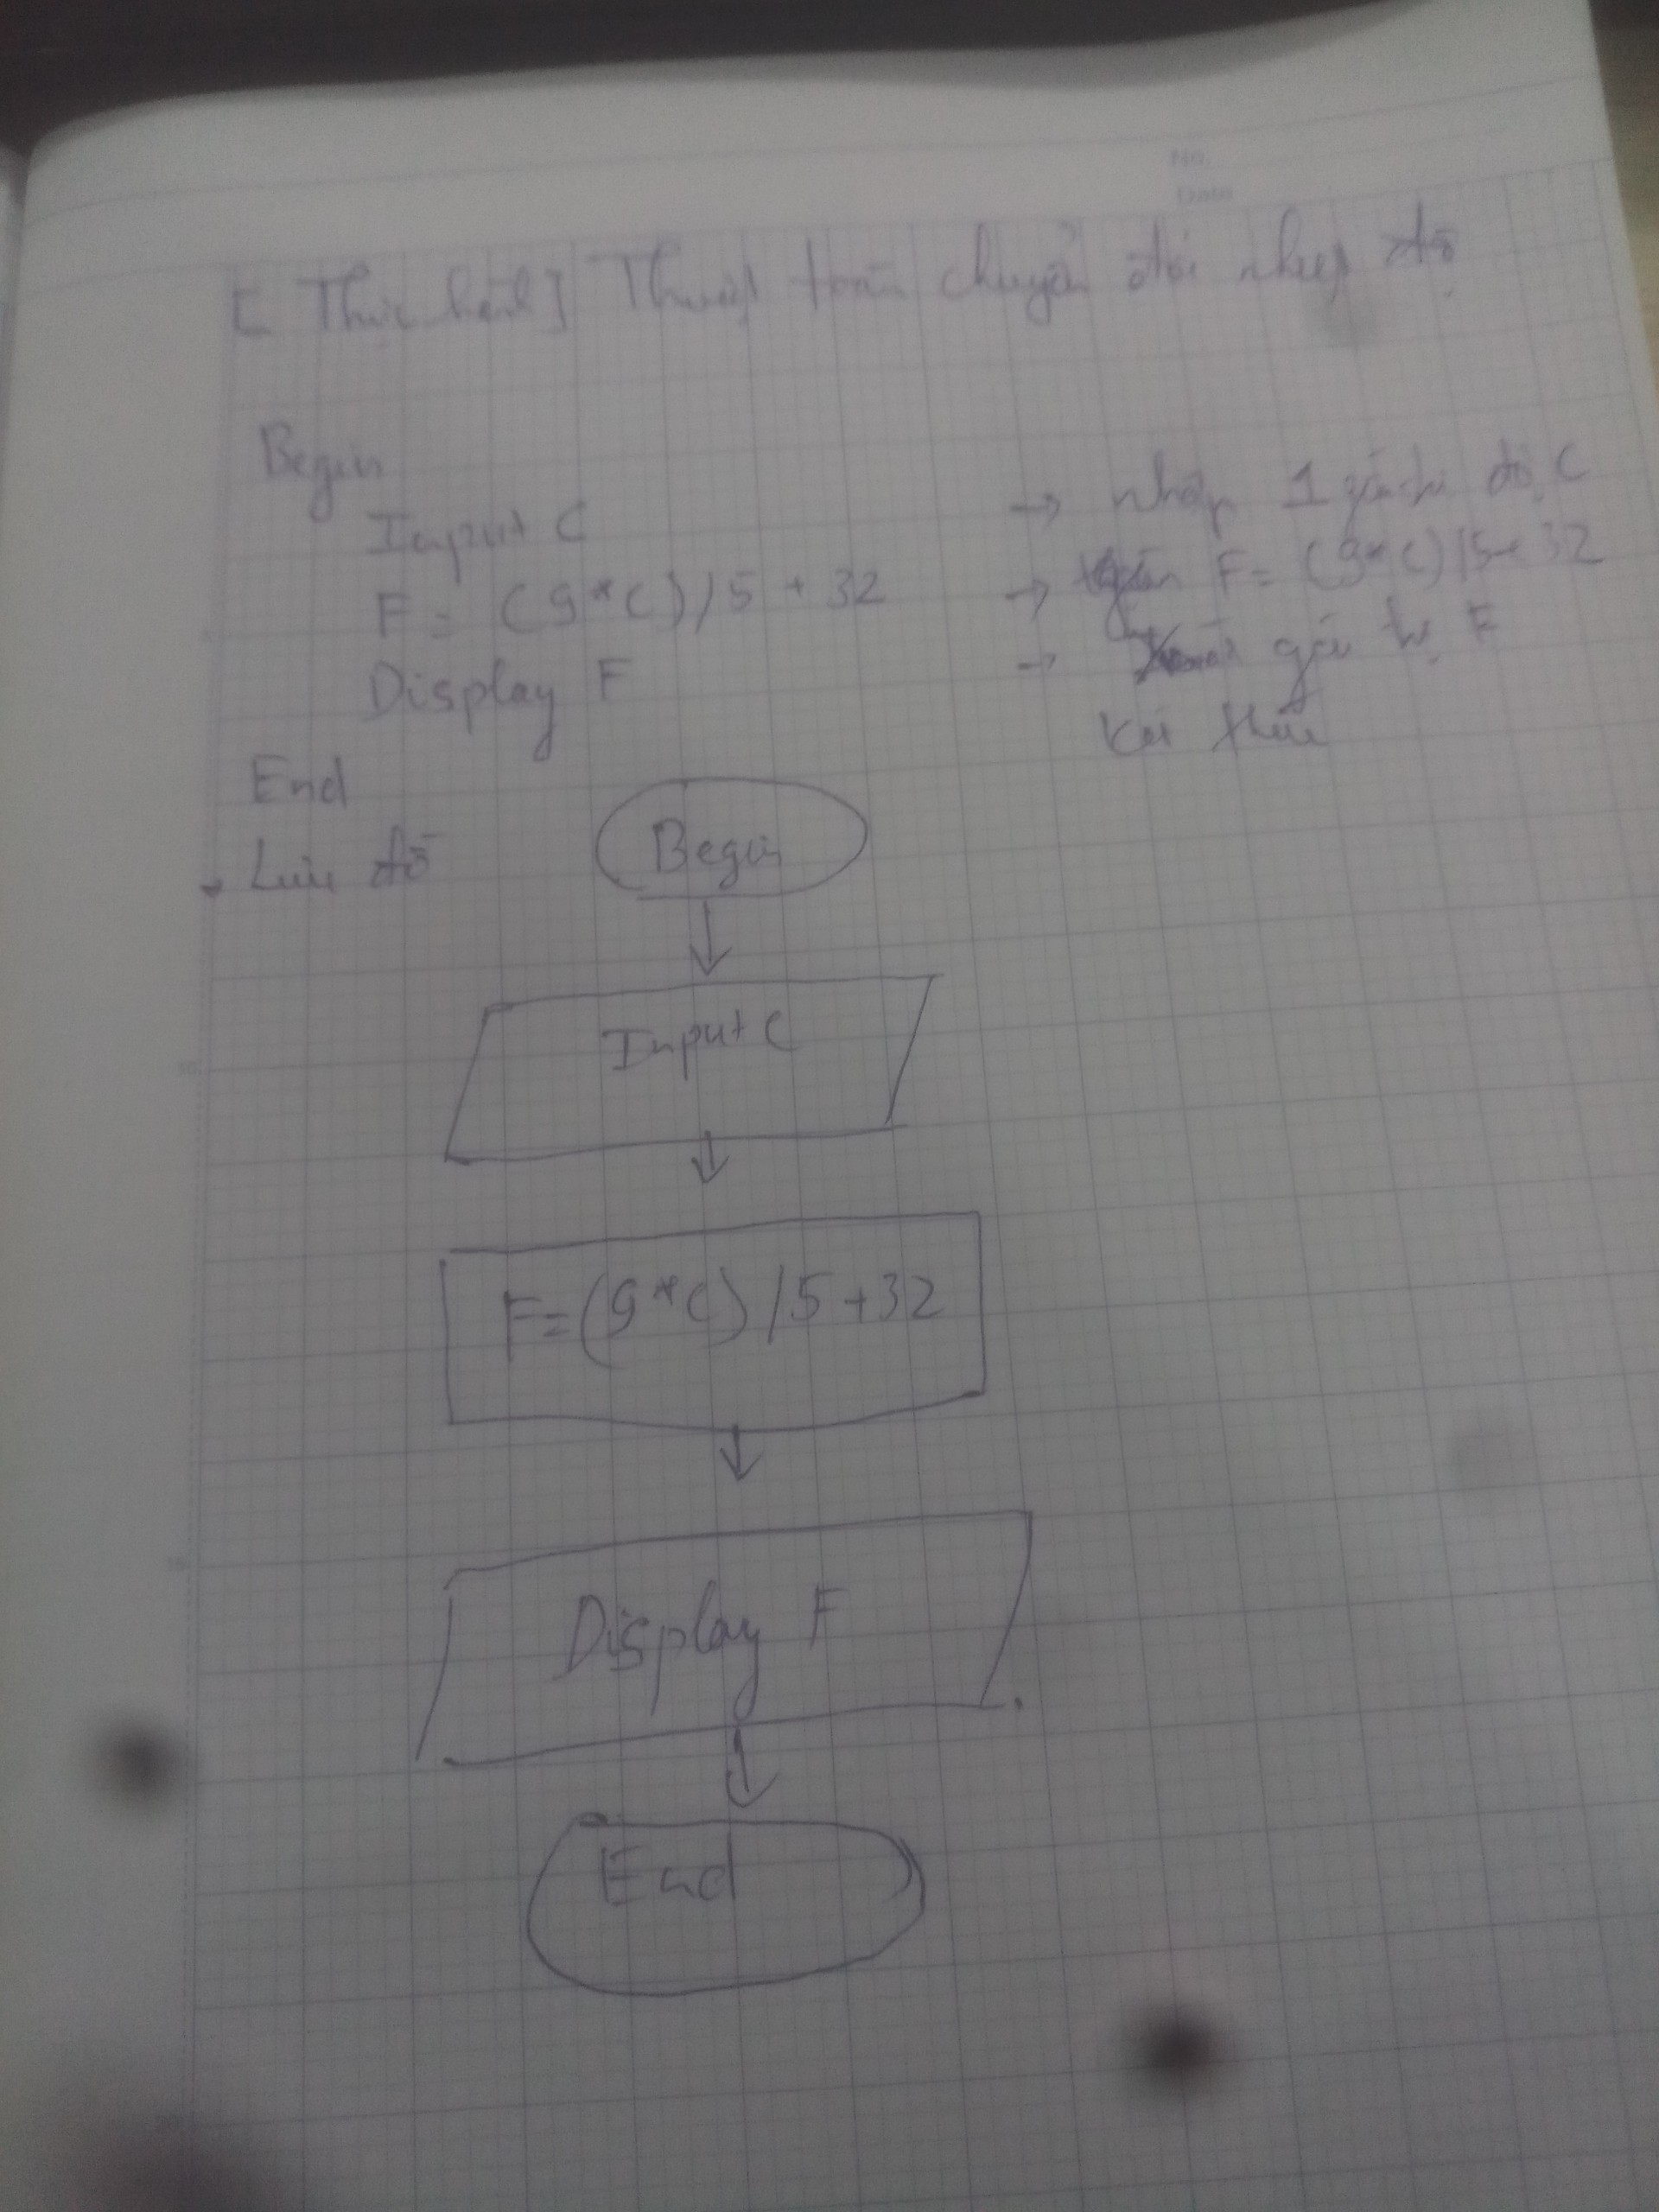 No.
Date
[ Thực hành ] Thuật toán chuyển đổi nhiệt độ
Begin
Input C → nhập 1 giá trị độ C
F = (9*C)/5 + 32 → gán F = (9*C)/5+32
Display F → giá trị F
End Kết thúc
Lưu đồ
Begin
Input C
F=(9*C)/5+32
Display F
End